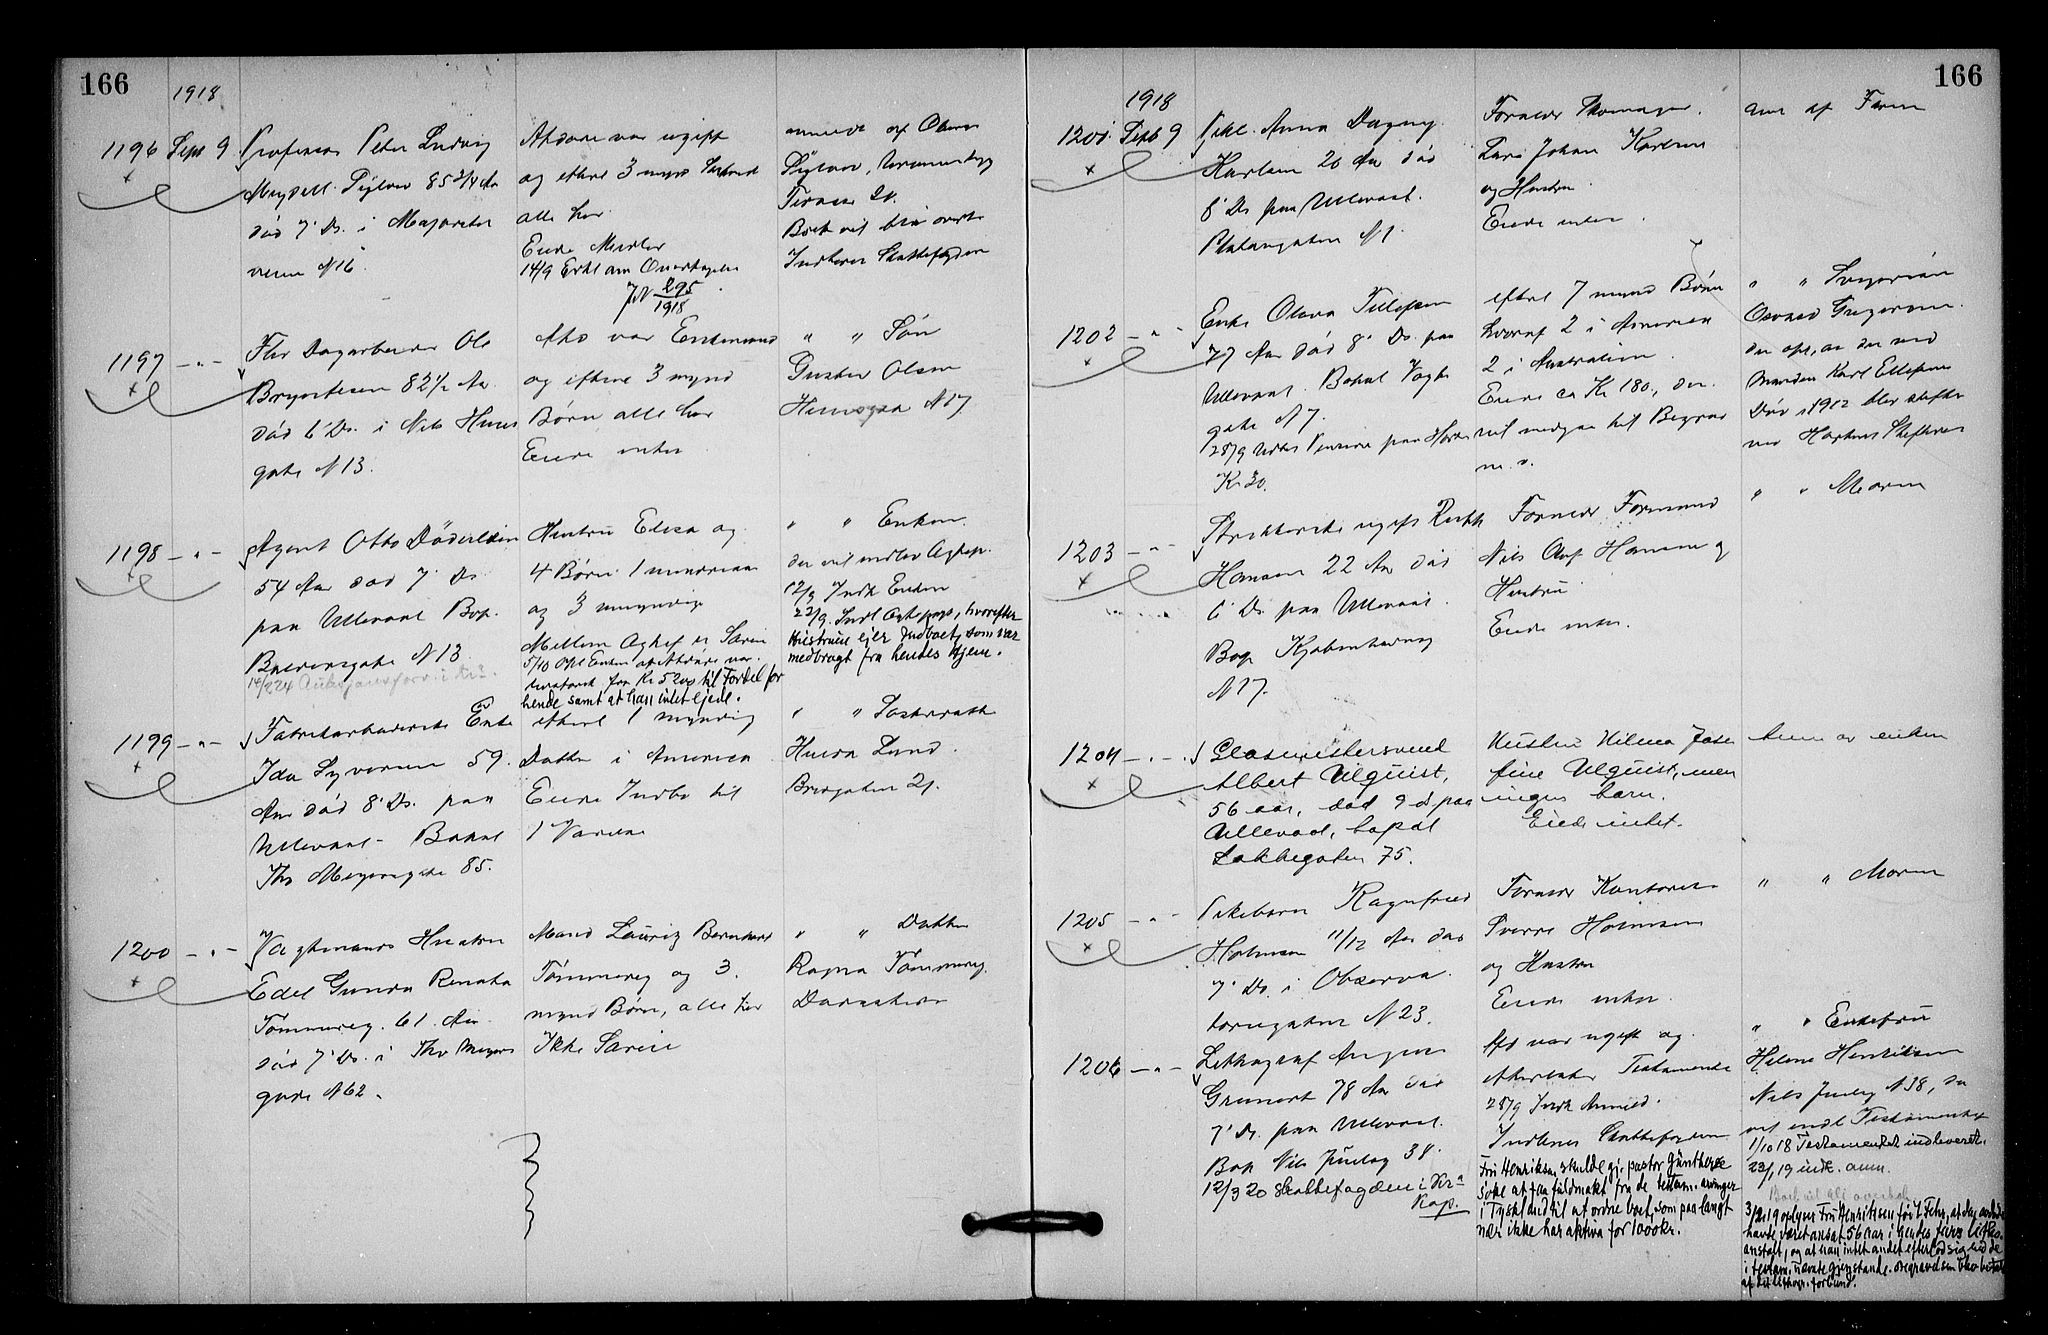 166
1918
1196 Sept 9 Professor Peter Ludvig
Mejdell Sylow 85 3/4 Aar
død 7' Ds. i Majorstu
veien N 16.
Afdøde var ugift
og efterl 3 mynd
alle her.
Eiede Midler
14/9 Erkl om Overtagelse
JN 295/1918
anmeldt af Oberst
Sylow,
Terasse 2.
Boet vil bli overt
Indberet Skattefogden
1197 - " - Fhv Dagarbeider Ole
Bryntesen 82 1/2 Aar
død 6' Ds. i Nils Hues
gate N 13.
Afd var Enkemand
og efterl 3 mynd
Børn alle her
Eiede intet
" " Søn
Gustav Olsen
N 17
1198 - " - Agent Otto Döderlein
54 Aar død 7' Ds
paa Ullevaal Bop.
N 13
14/2 24 i
Hustru Elisa og
4 Børn 1 mindreaa
og 3 umyndige
Mellem Ægtef er Særeie
5/10 Opl Enken at Afdøde var
livsforsk for Kr 5200 til Fordel for
hende samt at han intet ejede.
" " Enken
der vil indlev Ægtep.
12/9 Indk Enken
23/9. Indl Ægtepagt, hvorefter
Hustruen ejer Indboet, som var
medbragt fra hendes Hjem.
1199 - " - Fabrikarbeiderske Enke
Ida Syversen 59
Aar død 8' Ds. paa
Ullevaal - Bopæl
Thv Meyersgate 85.
efterl 1 myndig
Datter i Amerika
Eiede Indbo til
1 Værelse
" " Søsterdatter
Lund.
21.
1200 - " - Vagtmands Hustru
Edel Gunda Renata
Tømmereg. 61 Aar
død 7' Ds. i Thv Meyers
gade N 62.
Mand Lauritz Bernhard
Tømmereg og 3
mynd Børn, alle her
Ikke Særeie
" " Datter
Ragna Tømmereg.
Darnestuen
166
1918
1201. Sept 9 Frk. Anna Dagny
Karlsen 20 Aar død
8' Ds paa Ullevaal.
Platougaten N 1.
Forældr Skomager
Lars Johan Karlsen
og Hustru.
Eiede intet.
anm af Faren
1202 - " - Enke Olava Tellefsen
77 Aar død 8' Ds. paa
Ullevaal. Bopæl Vogts
gate N 7.
28/9 Udbet
Kr 30.
efterl 7 mynd Børn
hvoraf 2 i Amerika
2 i Australien.
Eiede ca Kr 180, der
vil medgaa til Begrav
m. v.
" " Svigersøn
Osvald Gregersen
der opl, at der ved
Manden Karl Ellefsens
Død i 1912 blev skiftet
ved Hortens Skifteret
1203 - " - Strikkerske ugift Ruth
Hansen 22 Aar død
6' Ds. paa Ullevaal.
Bop Kjøbenhavng
N 17.
Forældr Formand
Nils Hansen og
Hustru
Eiede intet.
" " Moren
1204 - " - Glasmestersvend
Albert Ulquist,
56 aar, død 9 ds paa
Ullevaal, bopæl
Lakkegaten 75.
Hustru Hilma Jose
fine Ulquist, men
ingen barn.
Eiede intet.
Anm av enken
1205 - " - Pikebarn Ragnfried
Holmsen 11/12 Aar død
7' Ds. i Observa
toriegaten N 23.
Forældr Kontorist
Sverre Holmsen
og Hustru
Eiede intet.
" " Moren
1206 - " - Lithograf August
Grunert 78 Aar død
7' Ds. paa Ullevaal.
Bop Nils Juelsg 38.
12/3 20 skattefogden i Kra
Kap.
Afd var ugift og
efterlader Testamente
28/9 Indk Anmeld.
Indberet Skattefogden
Fru Henriksen skulde gj. pastor Günther
søke at faa fuldmakt fra de testam. arvinger
i Tyskland til at ordne boet, som paa langt
nær ikke har aktiva for 1000 kr.
" " Enkefru
Helene Henriksen
Nils Juelsg N 38, der
vil indl Testamentet
1/10 18 Testamentet indleveret.
23/1 19 indk. anm.
3/2 19 oplyser Fru Henriksen født Fehr, at den avdøde
havde været ansat 56 aar i hendes fars litho.
anstalt, og at han intet andet efterlod sig end de
i testam. nævnte gjenstande. Begravelsen blev betalt
af forbund.